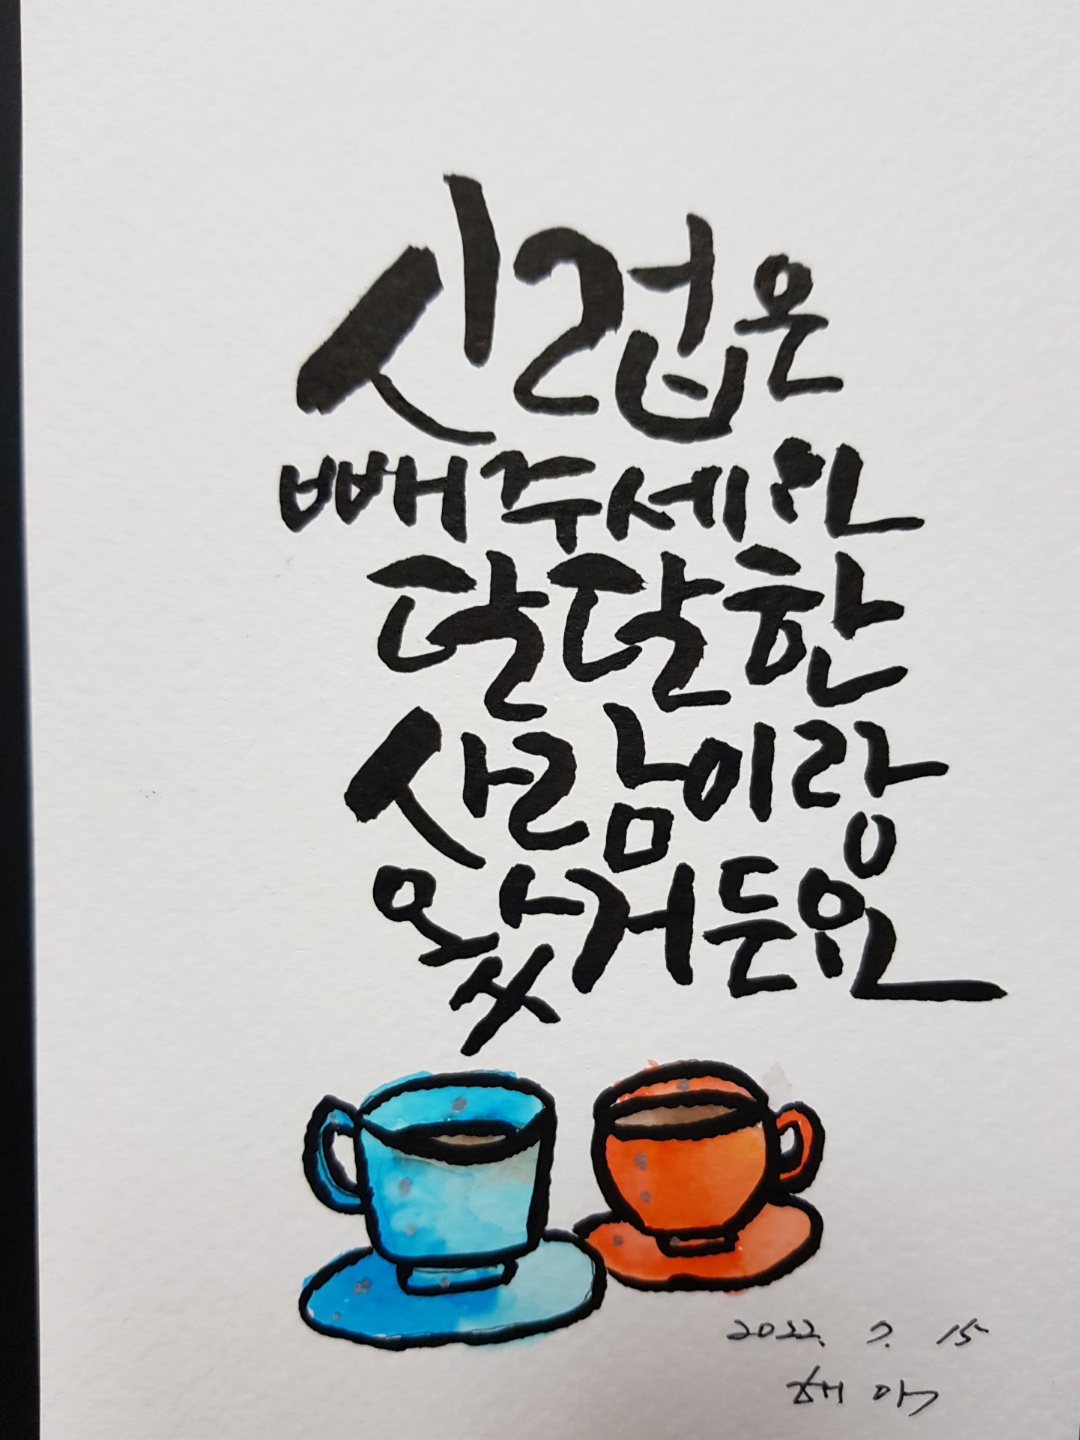 시럽은
빼주세요
달달한
사람이랑
왔거든요
2022. 7. 15
해아